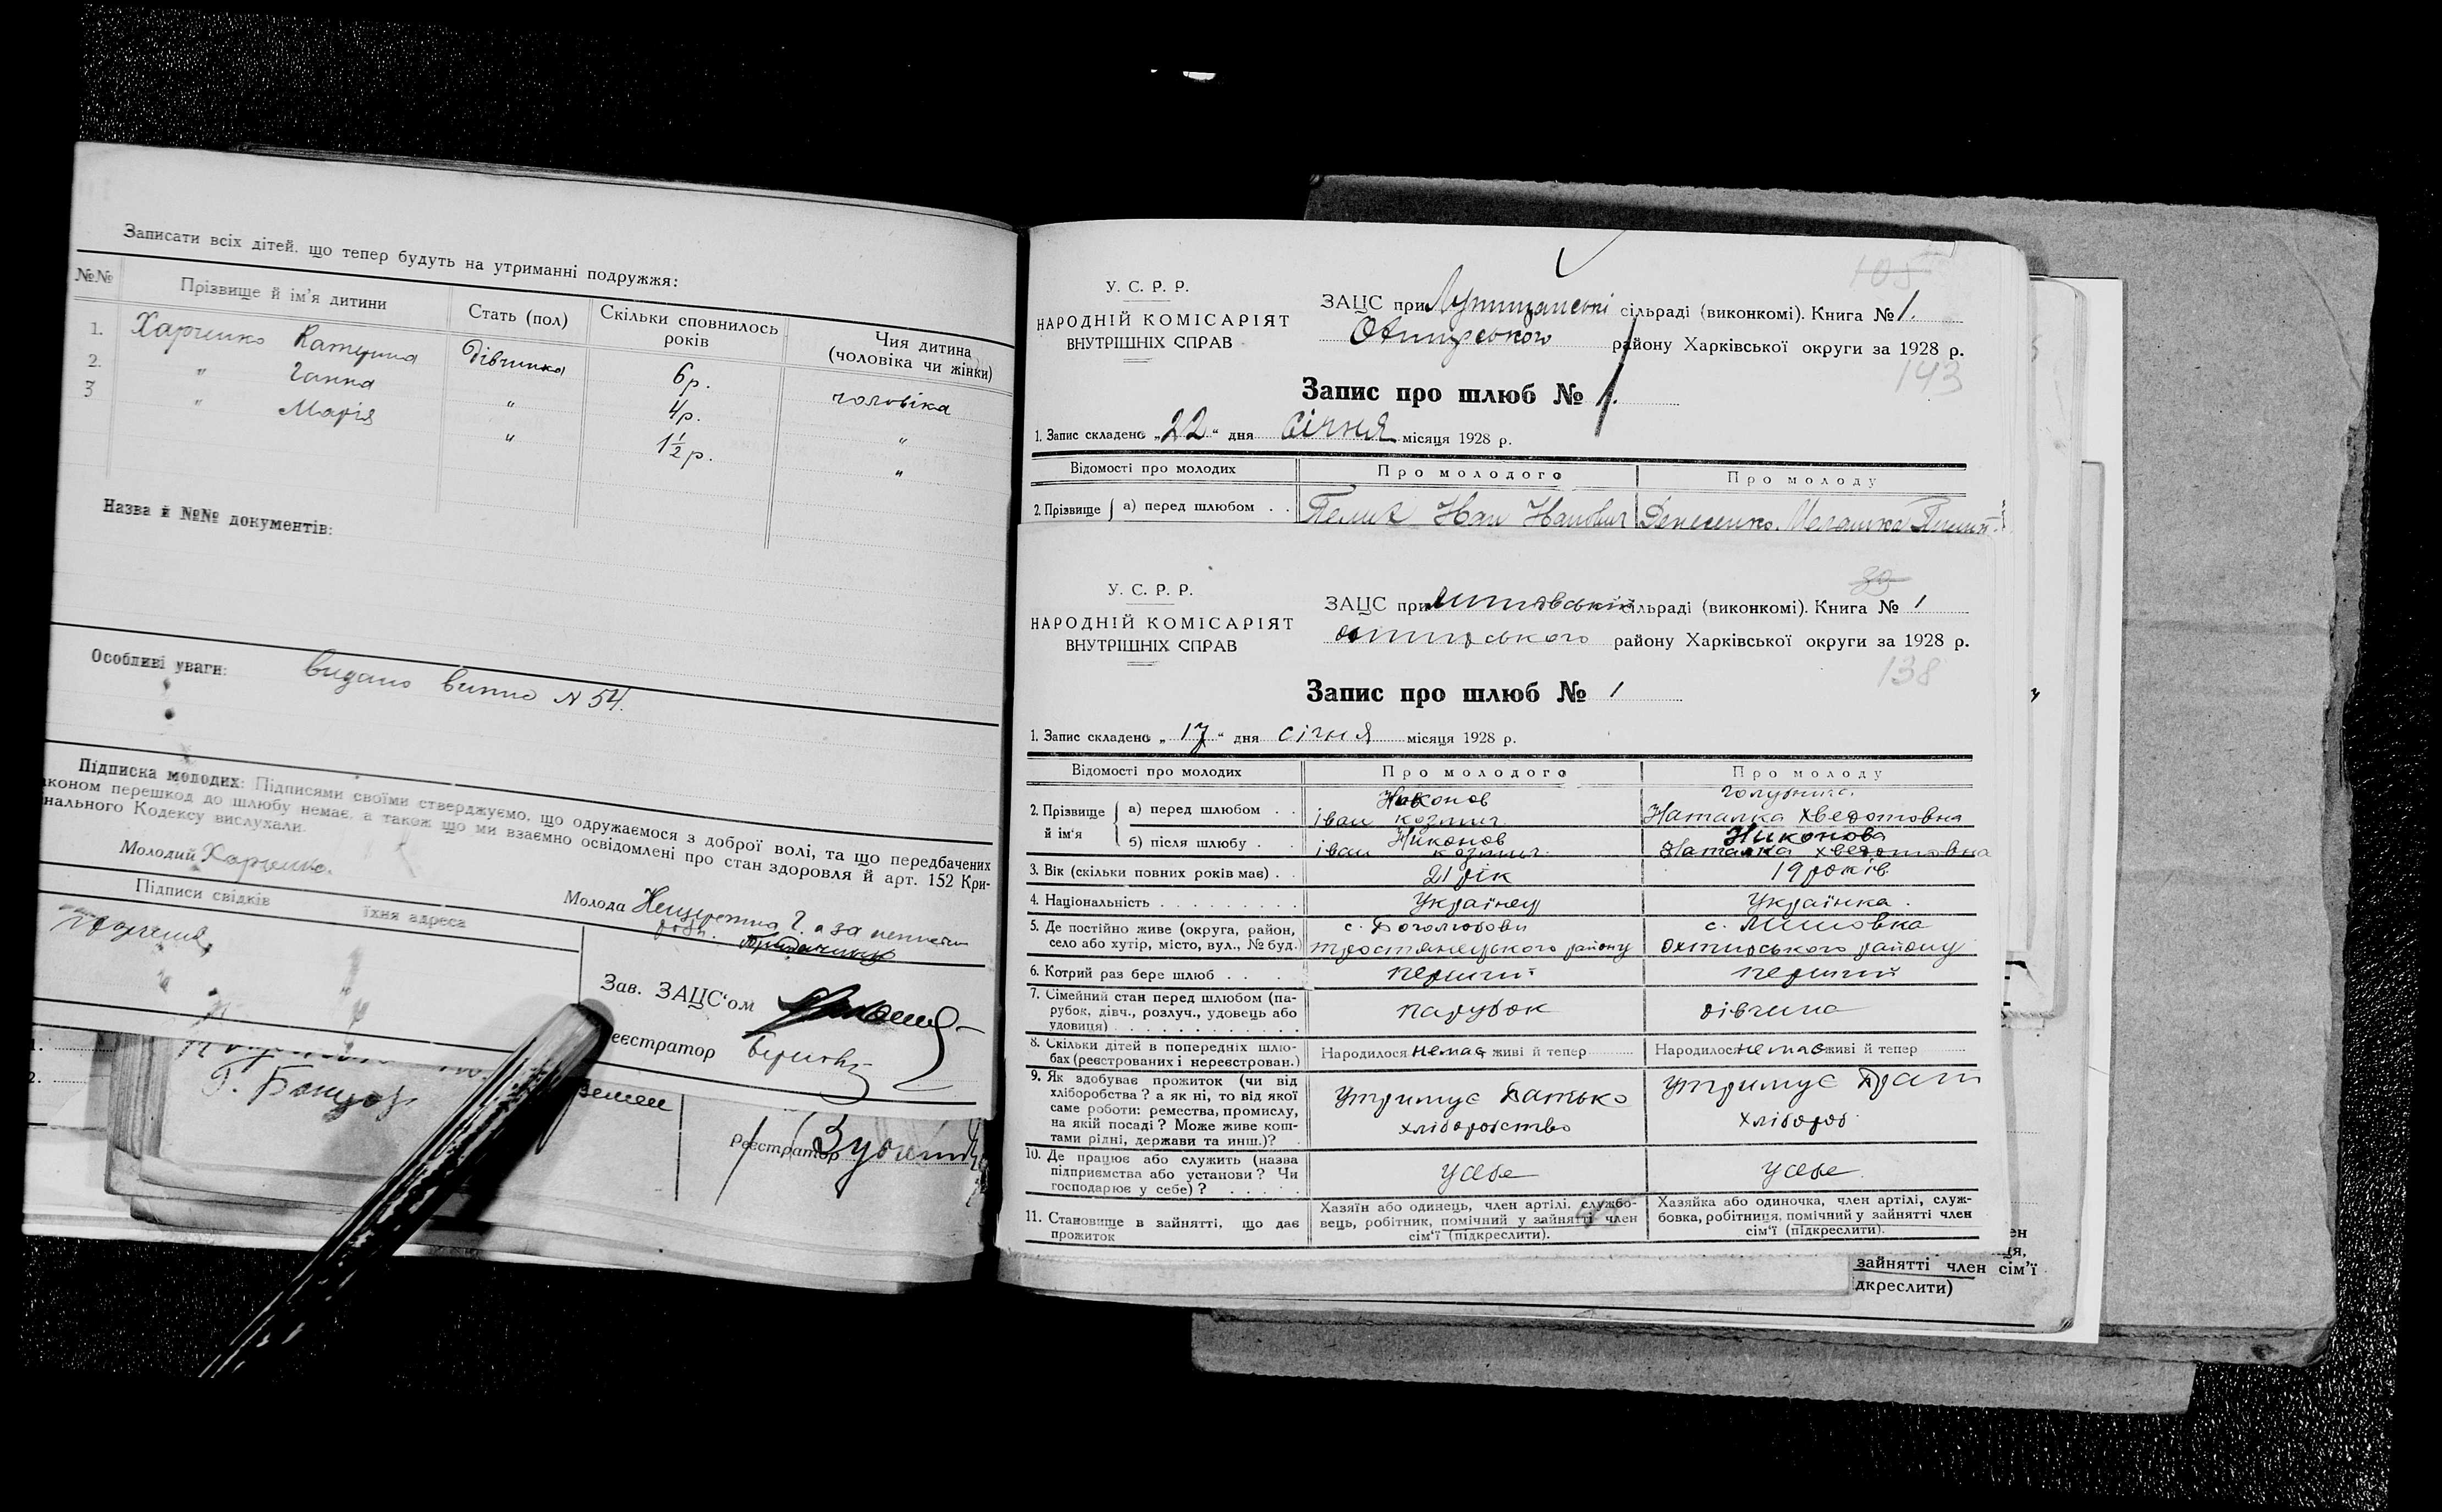 Записати всіх дітей, що тепер будуть на утриманні подружжя:
№№ Прізвище й ім'я дитини Стать (пол) Скільки сповнилось років Чия дитина (чоловіка чи жінки)
1. Харченко Катерина дівчинка 6р. чоловіка
2. " Ганна " 4р. "
3 " Марія " 1½р. "
Назва й №№ документів:
Особливі уваги: видано витяг N 54.
Підписка молодих: Підписями своїми стверджуємо, що одружаємося з доброї волі, та що передбачених
законом перешкод до шлюбу немає, а також що ми взаємно освідомлені про стан здоровля й арт. 152 Кри-
нального Кодексу вислухали.
Молодий Харченко
Молода
Підписи свідків їхня адреса
Зав. ЗАЦС'ом
Реєстратор
Реєстратор
1.
2.
У. С. Р. Р.
НАРОДНІЙ КОМІСАРІЯТ
ВНУТРІШНІХ СПРАВ
105
ЗАЦС при сільраді (виконкомі). Книга № 1.
Охтирського району Харківської округи за 1928 р.
143
Запис про шлюб № 1.
1. Запис складено „22" дня січня місяця 1928 р.
Відомості про молодих Про молодого Про молоду
2. Прізвище а) перед шлюбом . . Іван Іванович Денесенко
39
У. С. Р. Р.
НАРОДНІЙ КОМІСАРІЯТ
ВНУТРІШНІХ СПРАВ
ЗАЦС при сільраді (виконкомі). Книга № 1
охтирського району Харківської округи за 1928 р.
138
Запис про шлюб № 1
1. Запис складено „17" дня січня місяця 1928 р.
Відомості про молодих Про молодого Про молоду
2. Прізвище й ім'я
а) перед шлюбом . . Никонов іван козмич Наталка Хведотовна
б) після шлюбу . Никонов іван козмич Никонова Наталка Хведотовна
3. Вік (скільки повних років має) . . 21 рік 19 років
4. Національність . . . . . . . . . Українец Українка.
5. Де постійно живе (округа, район, село або хутір, місто, вул., № буд.) с. Боголюбови тростянецького району с. Литовка охтирського району
6. Котрий раз бере шлюб . . . перший перший
7. Сімейний стан перед шлюбом (па-
рубок, дівч., розлуч., удовець або
удовиця) . . . . . . . . . . . . парубок дівчина
8. Скільки дітей в попередніх шлю-
бах (реєстрованих і нереєстрован.) Народилося немає живі й тепер Народилося немає живі й тепер
9. Як здобуває прожиток (чи від
хліборобства? а як ні, то від якої
саме роботи: ремества, промислу,
на якій посаді? Може живе кош-
тами рідні, держави та инш.)? Утримує Батько хліборобство утримує Брат хлібороб
10. Де працює або служить (назва
підприємства або установи? Чи
господарює у себе)? . . . . . усебе усебе
11. Становище в зайнятті, що дає
прожиток
Хазяїн або одинець, член артілі, службо-
вець, робітник, помічний у зайнятті член
сім'ї (підкреслити).
Хазяйка або одиночка, член артілі, служ-
бовка, робітниця, помічний у зайнятті член
сім'ї (підкреслити).
зайнятті член сім'ї
дкреслити)